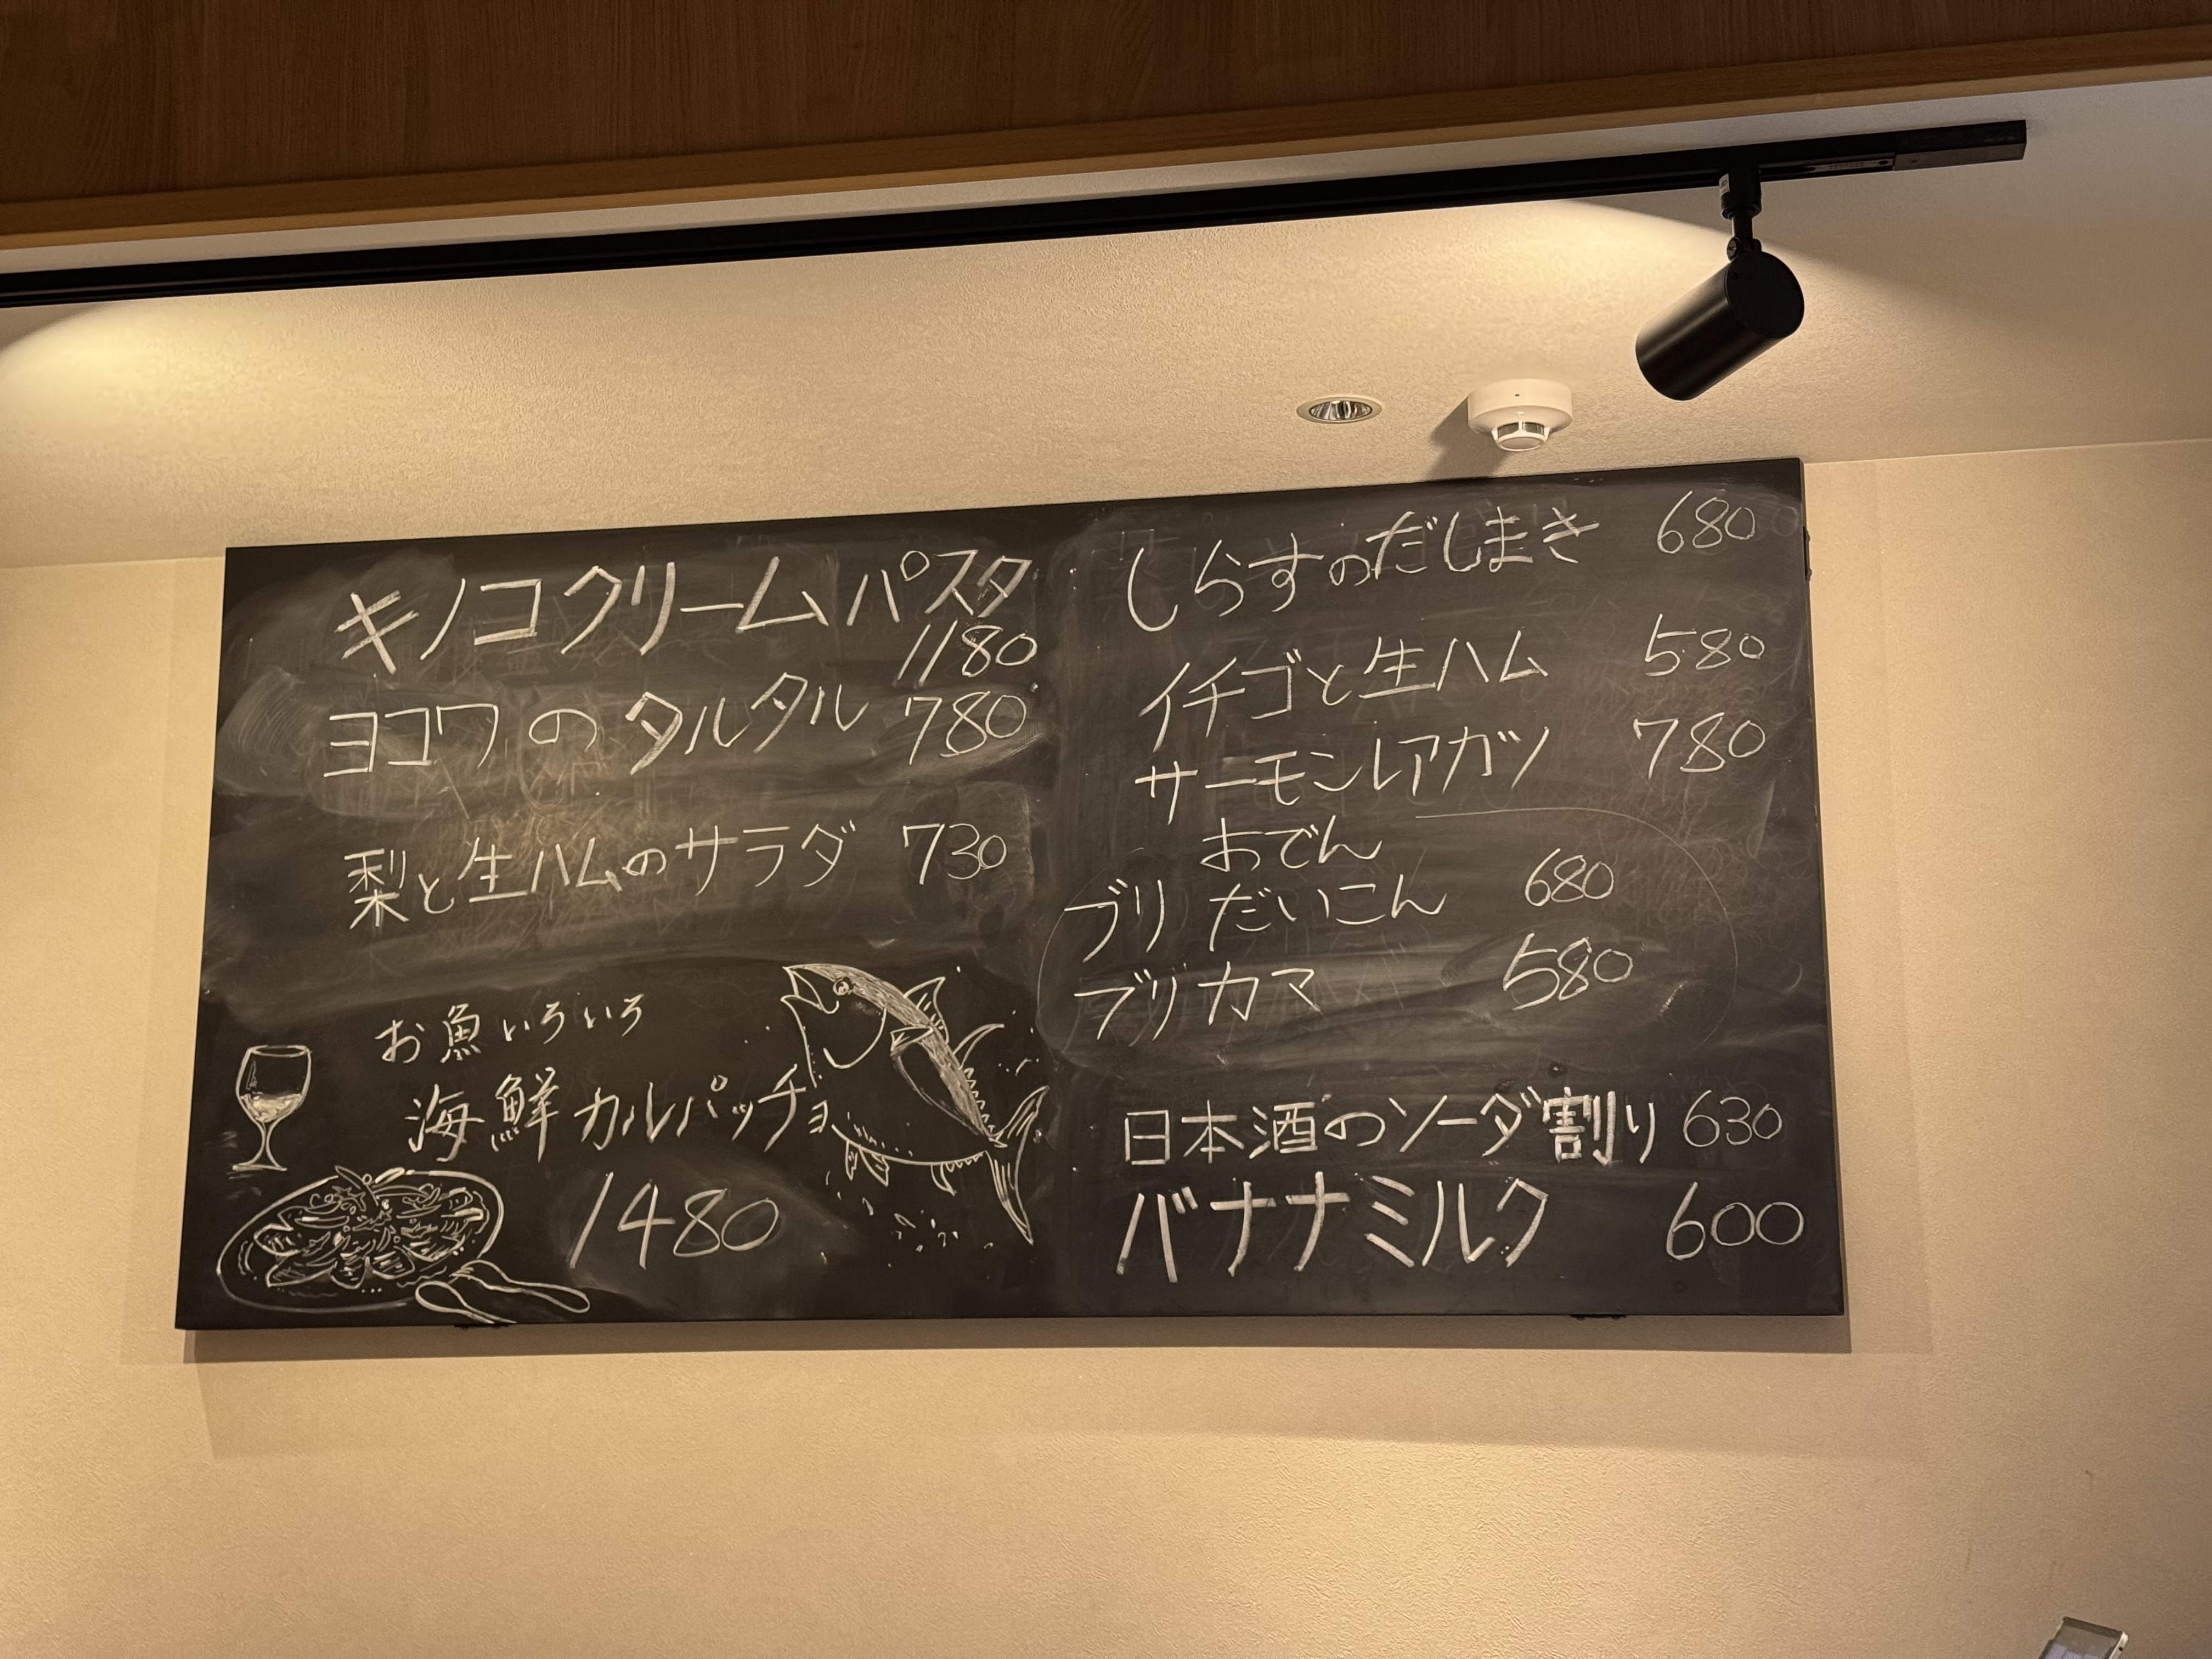 キノコクリームパスタ
1180
ヨコワのタルタル 780
梨と生ハムのサラダ 730
お魚いろいろ
海鮮カルパッチョ
1480
しらすのだしまき 680
イチゴと生ハム 580
サーモンレアカツ 780
おでん
ブリだいこん 680
ブリカマ 580
日本酒のソーダ割り 630
バナナミルク 600